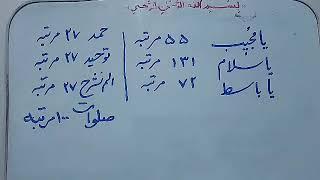 بسم الله الرحمن الرحیم
یا مجیب ۵۵ مرتبه
یا سلام ۱۳۱ مرتبه
یا باسط ۷۲ مرتبه
حمد ۲۷ مرتبه
توحید ۲۷ مرتبه
الم نشرح ۲۷ مرتبه
صلوات ۱۰۰ مرتبه